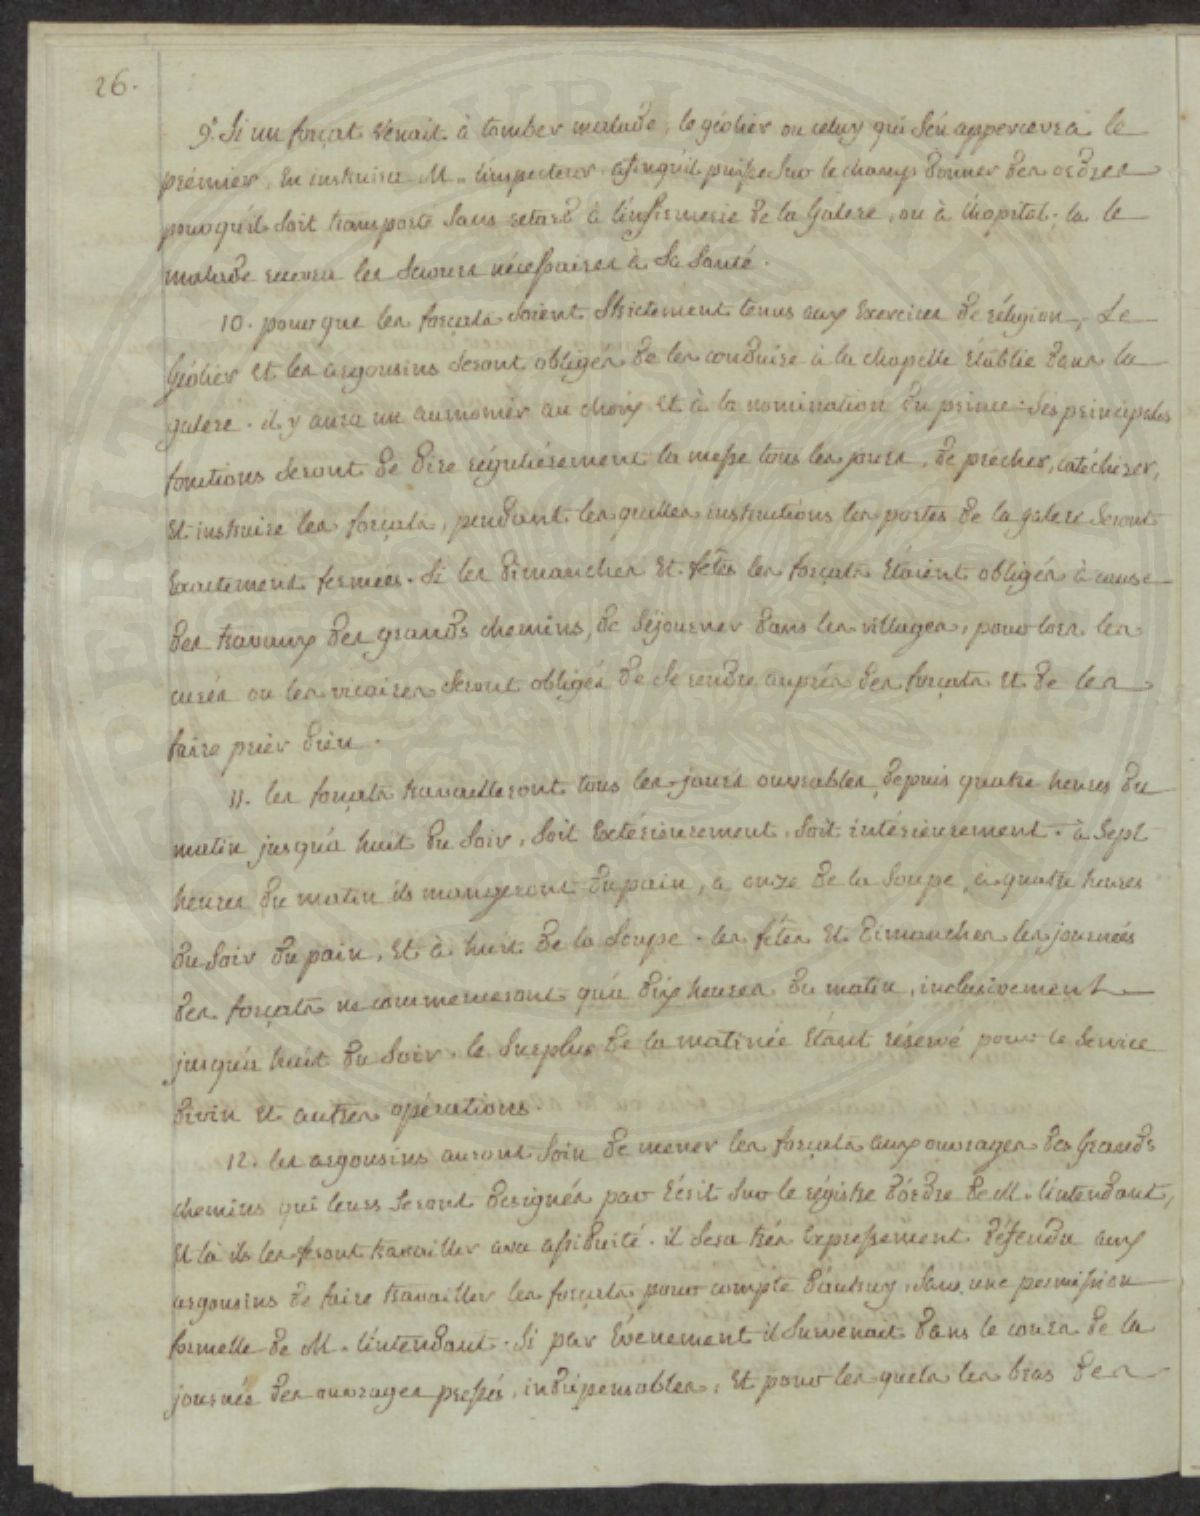 26.
9.° Si un forçat venait à tomber malade, le géolier ou celuy qui s'én appercevra le
prémier, en instruira M. l'inspecteur afinqu'il puisse sur le champ donner des ordres
pourqu'il soit transporté sans retard à l'infirmerie de la Galere, ou à l'hopital. la le
malade recevra les secours nécessaires à sa santé.
10. pour que les forçats soient strictement tenus aux exercices de réligion, Le
Géolier et les argousins seront obligés de les conduire à la chapelle établie dans la
galere. il y aura un aumonier au choix et à la nomination du prince. Ses principales
fonctions seront de dire réguliérement la messe tous les jours, de précher, catéchiser,
et instruire les forçats, pendant les quelles instructions les portes de la galere seront
exactement fermées. Si les dimanches et fêtes les forçats étaient obligés à cause
des travaux des grands chemins, de séjourner dans les villages, pour lors les
curés ou les vicaires seront obligés de se rendre auprés des forçats et de les
faire prier dieu.
11. les forçats travailleront tous les jours ouvrables, depuis quatre heures du
matin jusqu'à huit du soir, soit extérieurement, soit intérieurement. à sept
heures du matin ils mangeront du pain, à onze de la soupe, à quatre heures
du soir du pain, et à huit de la soupe. les fêtes et dimanches les journées
des forçats ne commenceront qu'à dix heures du matin, inclusivement
jusqu'à huit du soir. le surplus de la matinée étant réservé pour le service
divin et autres opérations.
12. les argousins auront soin de mener les forçats aux ouvrages des Grands
chemins qui leurs seront désignés par écrit sur le régistre d'ordre de M. l'intendant,
et là ils les feront travailler avec assiduité. il sera trés expressément défendu aux
argousins de faire travailler les forçats pour compte d'autruy, sans une permission
formelle de M. l'intendant. Si par évenement il survenait dans le cours de la
journée des ouvrages pressés, indispensables, et pour les quels les bras des